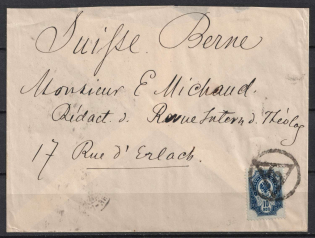 Suisse Berne
Monsieur E Michaud.
Rédact. d. Revue Intern d. Théolog
17 Rue d'Erlach.